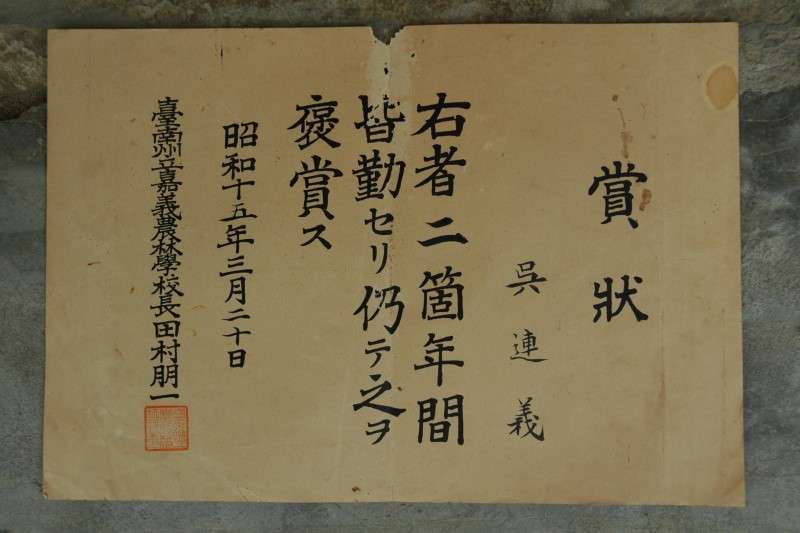 賞狀
吳連義
右者二箇年間
皆勤セリ仍テ之ヲ
褒賞ス
昭和十五年三月二十日
臺南州立嘉義農林學校長田村朋一